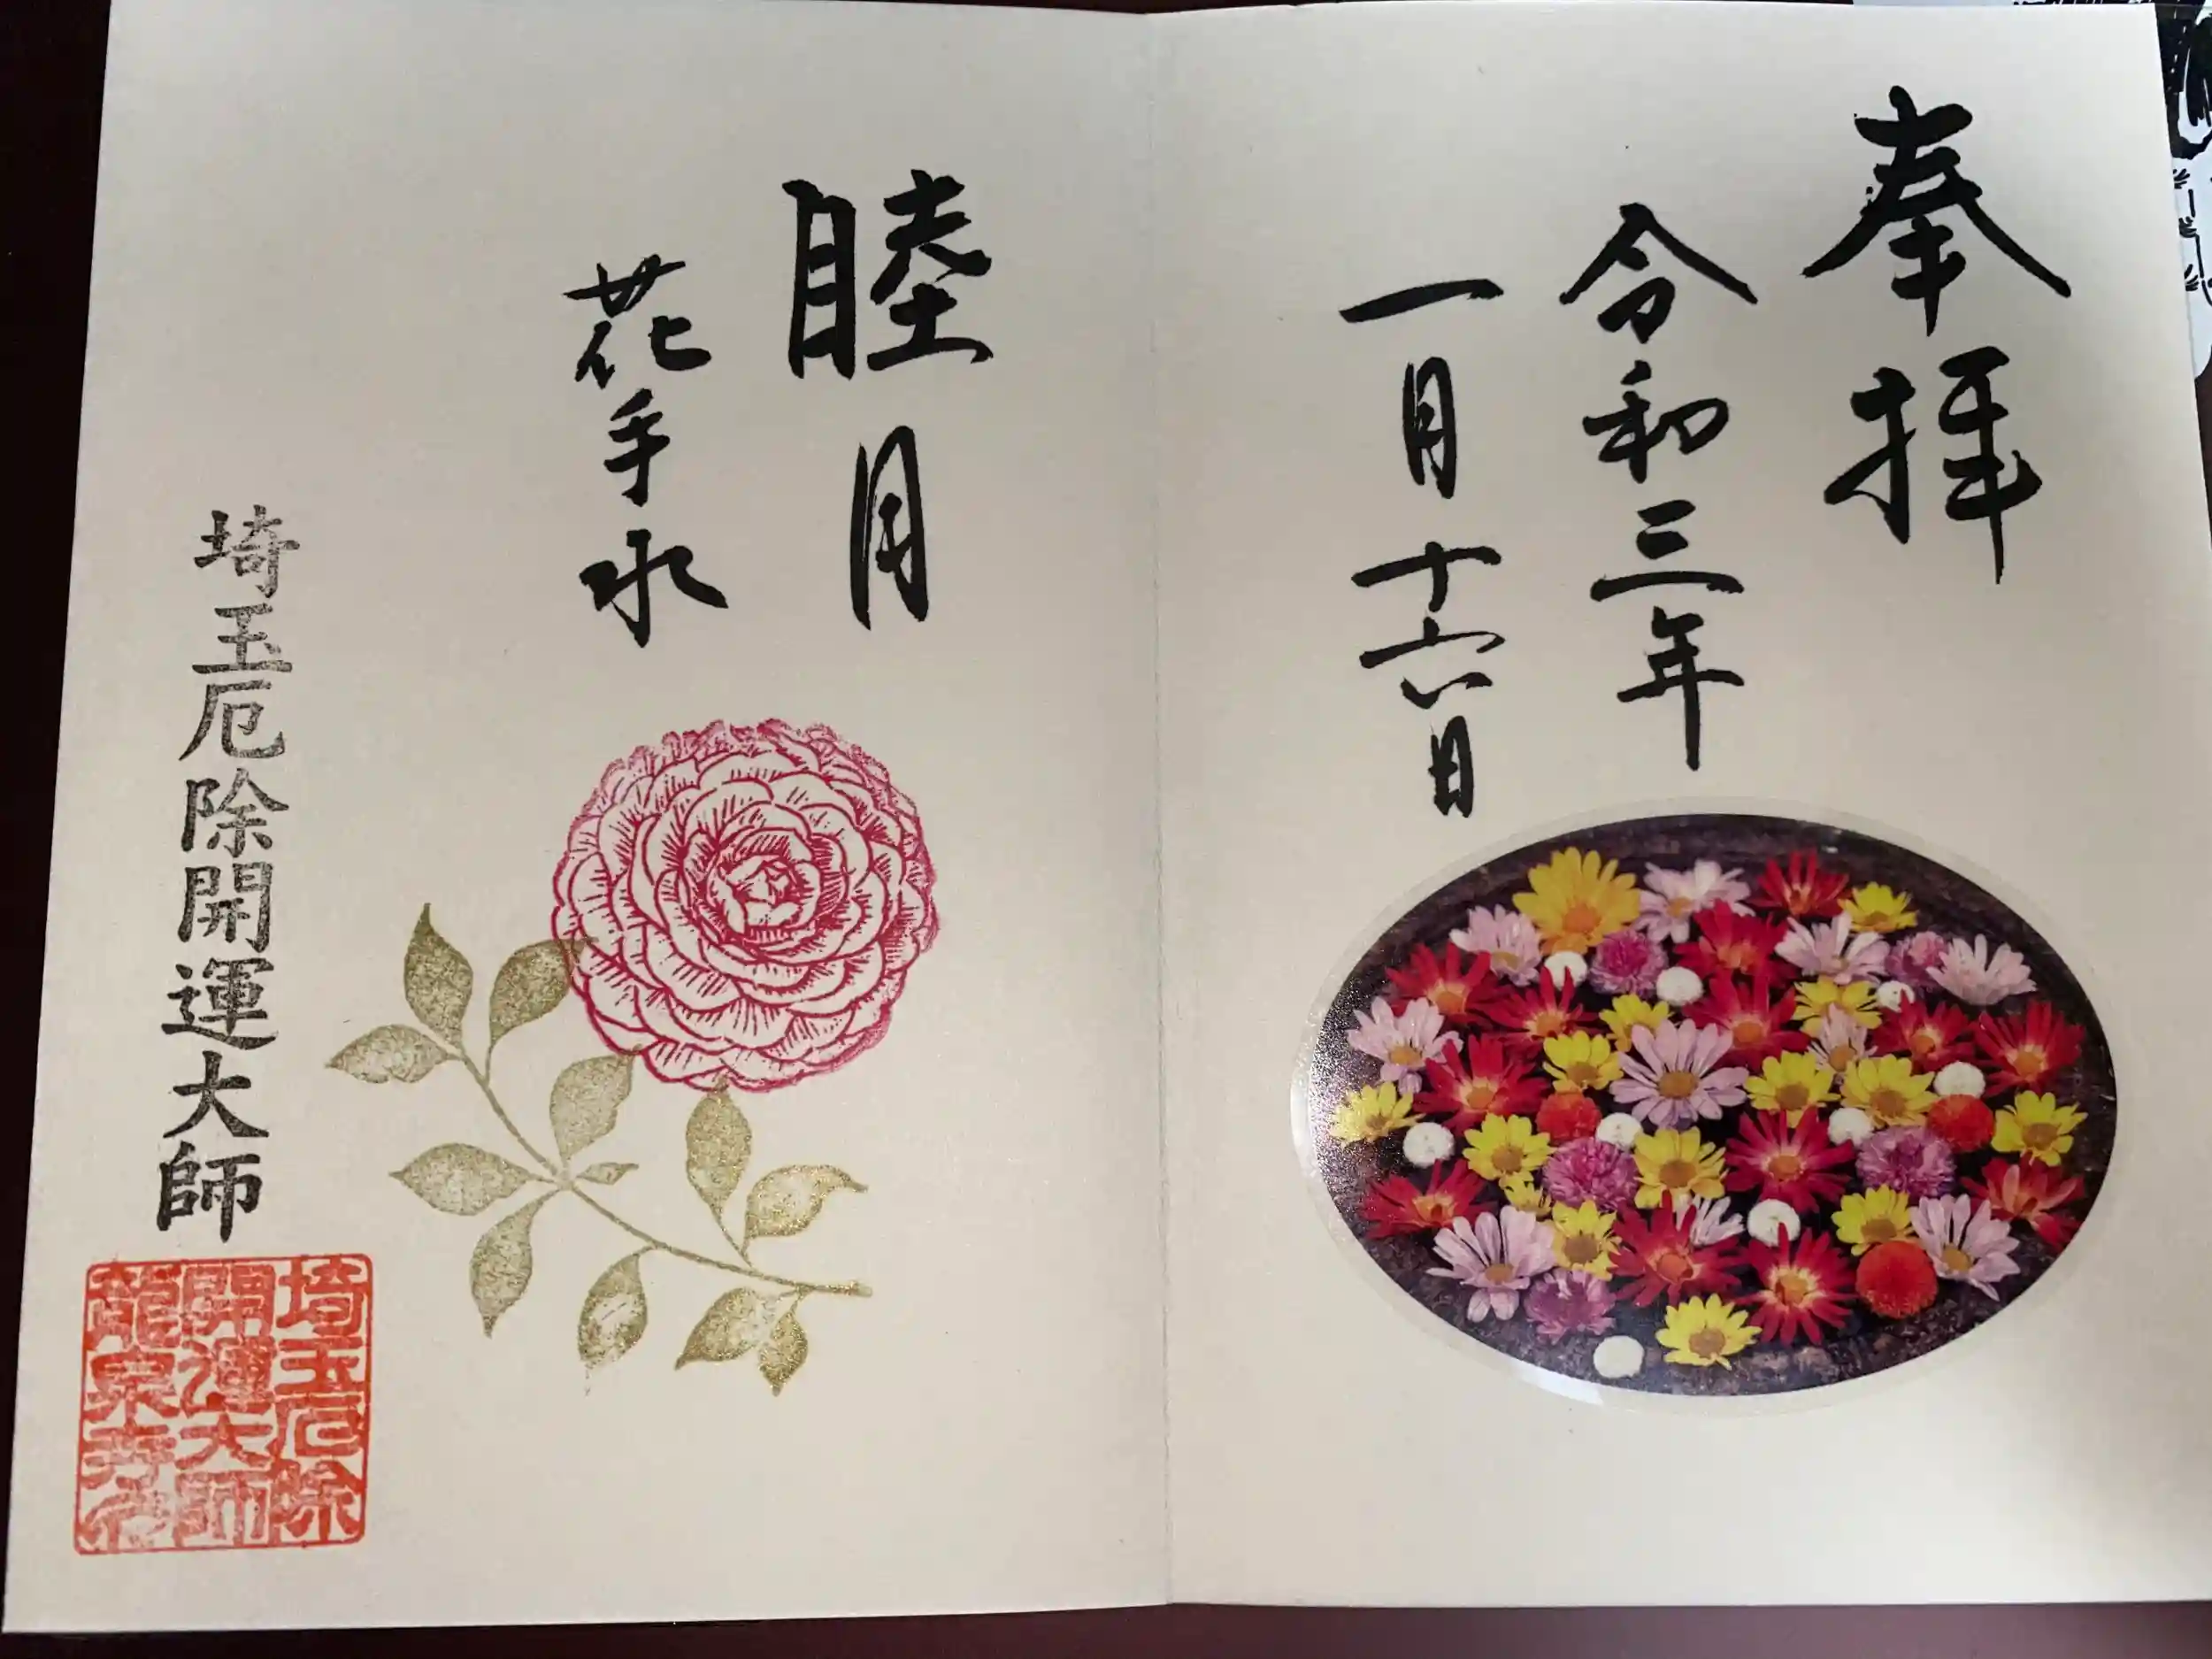 奉拝
令和三年
一月十六日
睦月
花手水
埼玉厄除開運大師
埼玉厄除
開運大師
龍泉寺印